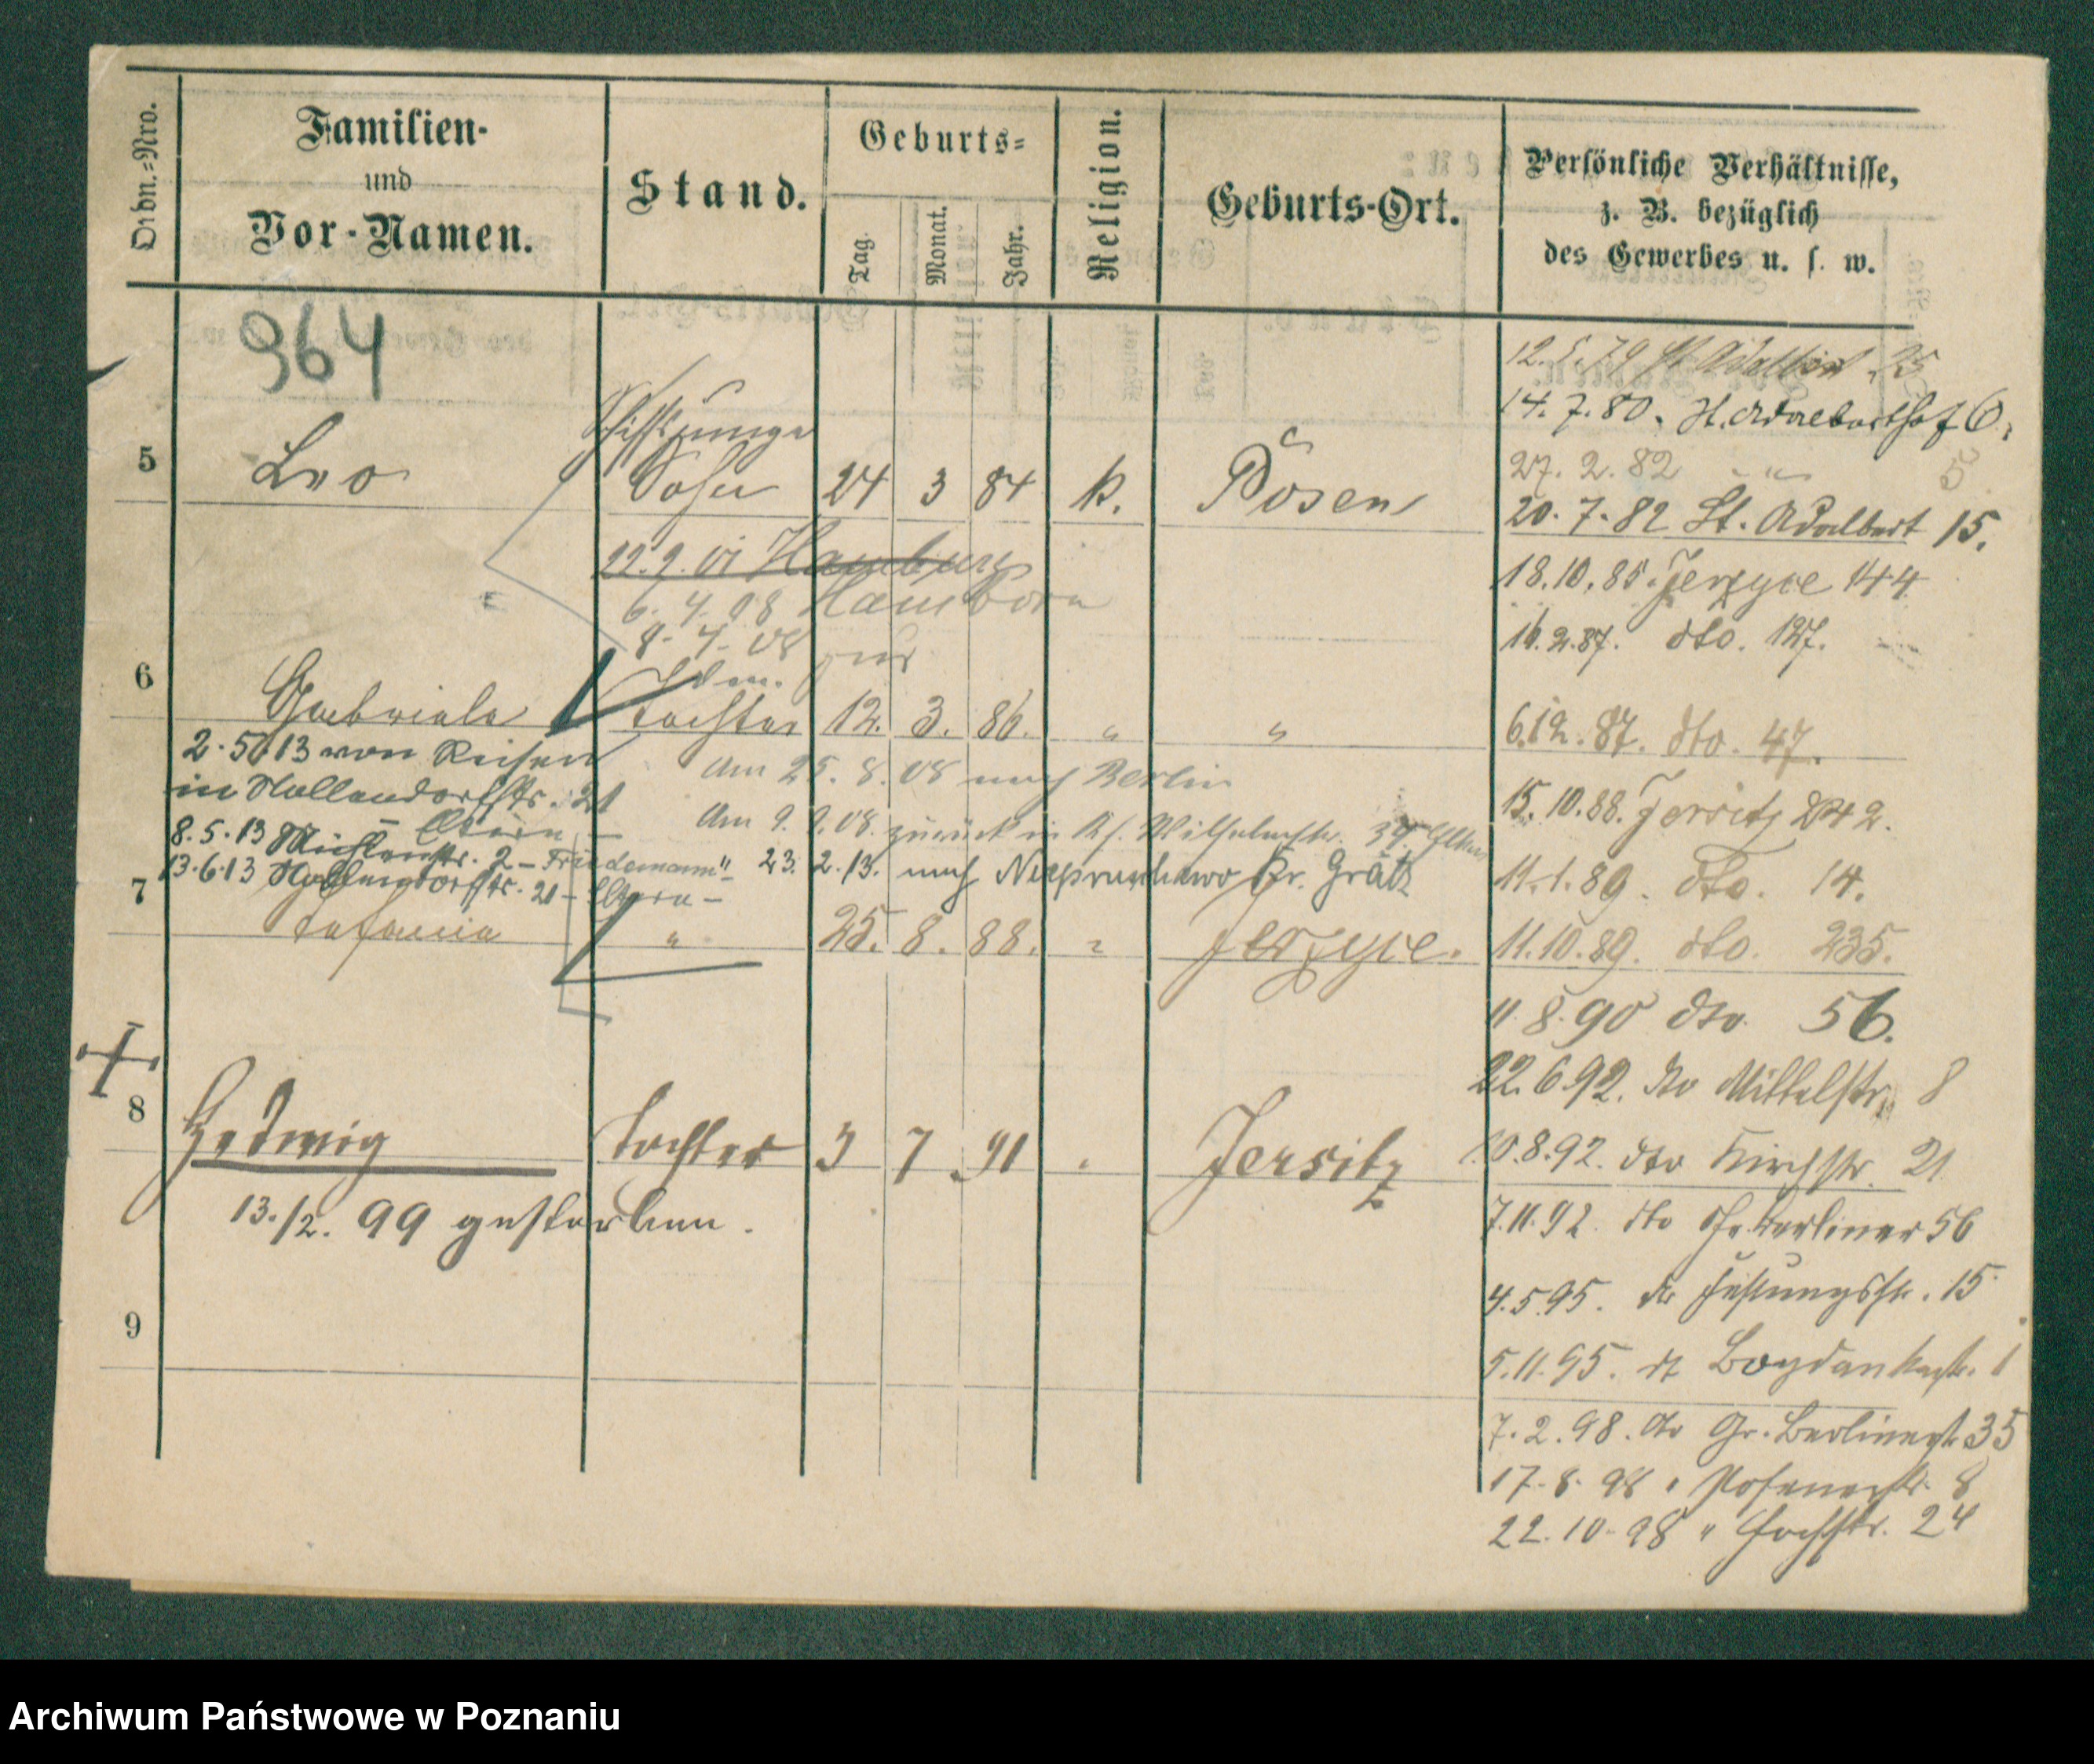 Ordn.=Nro.
Familien-
und
Vor-Namen.
Stand.
Geburts=
Tag.
Monat.
Jahr.
Religion.
Geburts-Ort.
Persönliche Verhältnisse,
z. B. bezüglich
des Gewerbes u. s. w.
964
Schiffsjunge
5 Leo Sohn 24 3 84 k. Posen
22.9.01 Hamburg
6. 4. 08 Hamborn
8. 4. 08 zur
6 Gabriela Tochter 12. 3. 86. " "
2.5.13 von Reisen
in Nollendorfstr. 21
– Eltern –
8.5.13 2 – Friedemann"
13.6.13 Nollendorfstr. 21 – Eltern –
Am 25. 8. 08 nach Berlin
Am 9. 9. 08. zurück in Wilhelmstr. 37 Eltern
23. 2. 13. nach Kr. Grätz
7 Stefania " 25. 8. 88. " Jerzyce.
8 Hedwig Tochter 3 7 91 " Jersitz
13./2. 99 gestorben.
9
12. 5. 79 St Adalbert 25
14. 7. 80. St. Adalberthof 6.
27. 2. 82 " " 5
20. 7. 82 St. Adalbert 15.
18.10.85. Jerzyce 144
16.2.87. dto. 127.
6.12.87. dto. 47.
15.10.88. Jersitz 242.
11.1.89. dto. 14.
11.10.89. dto. 235.
11.8.90 dto. 56.
22.6.92. dto Mittelstr. 8
10.8.92. dto Kirchstr. 21
7.11.92. dto Gr. Berliner 56
4.5.95. dto Festungsstr. 15
5.11.95. dt Bogdankastr. 1
7.2.98. dto Gr. Berlinerstr 35
17.8.98 " Posenerstr. 8
22.10.98 " Hochstr. 24
Archiwum Państwowe w Poznaniu